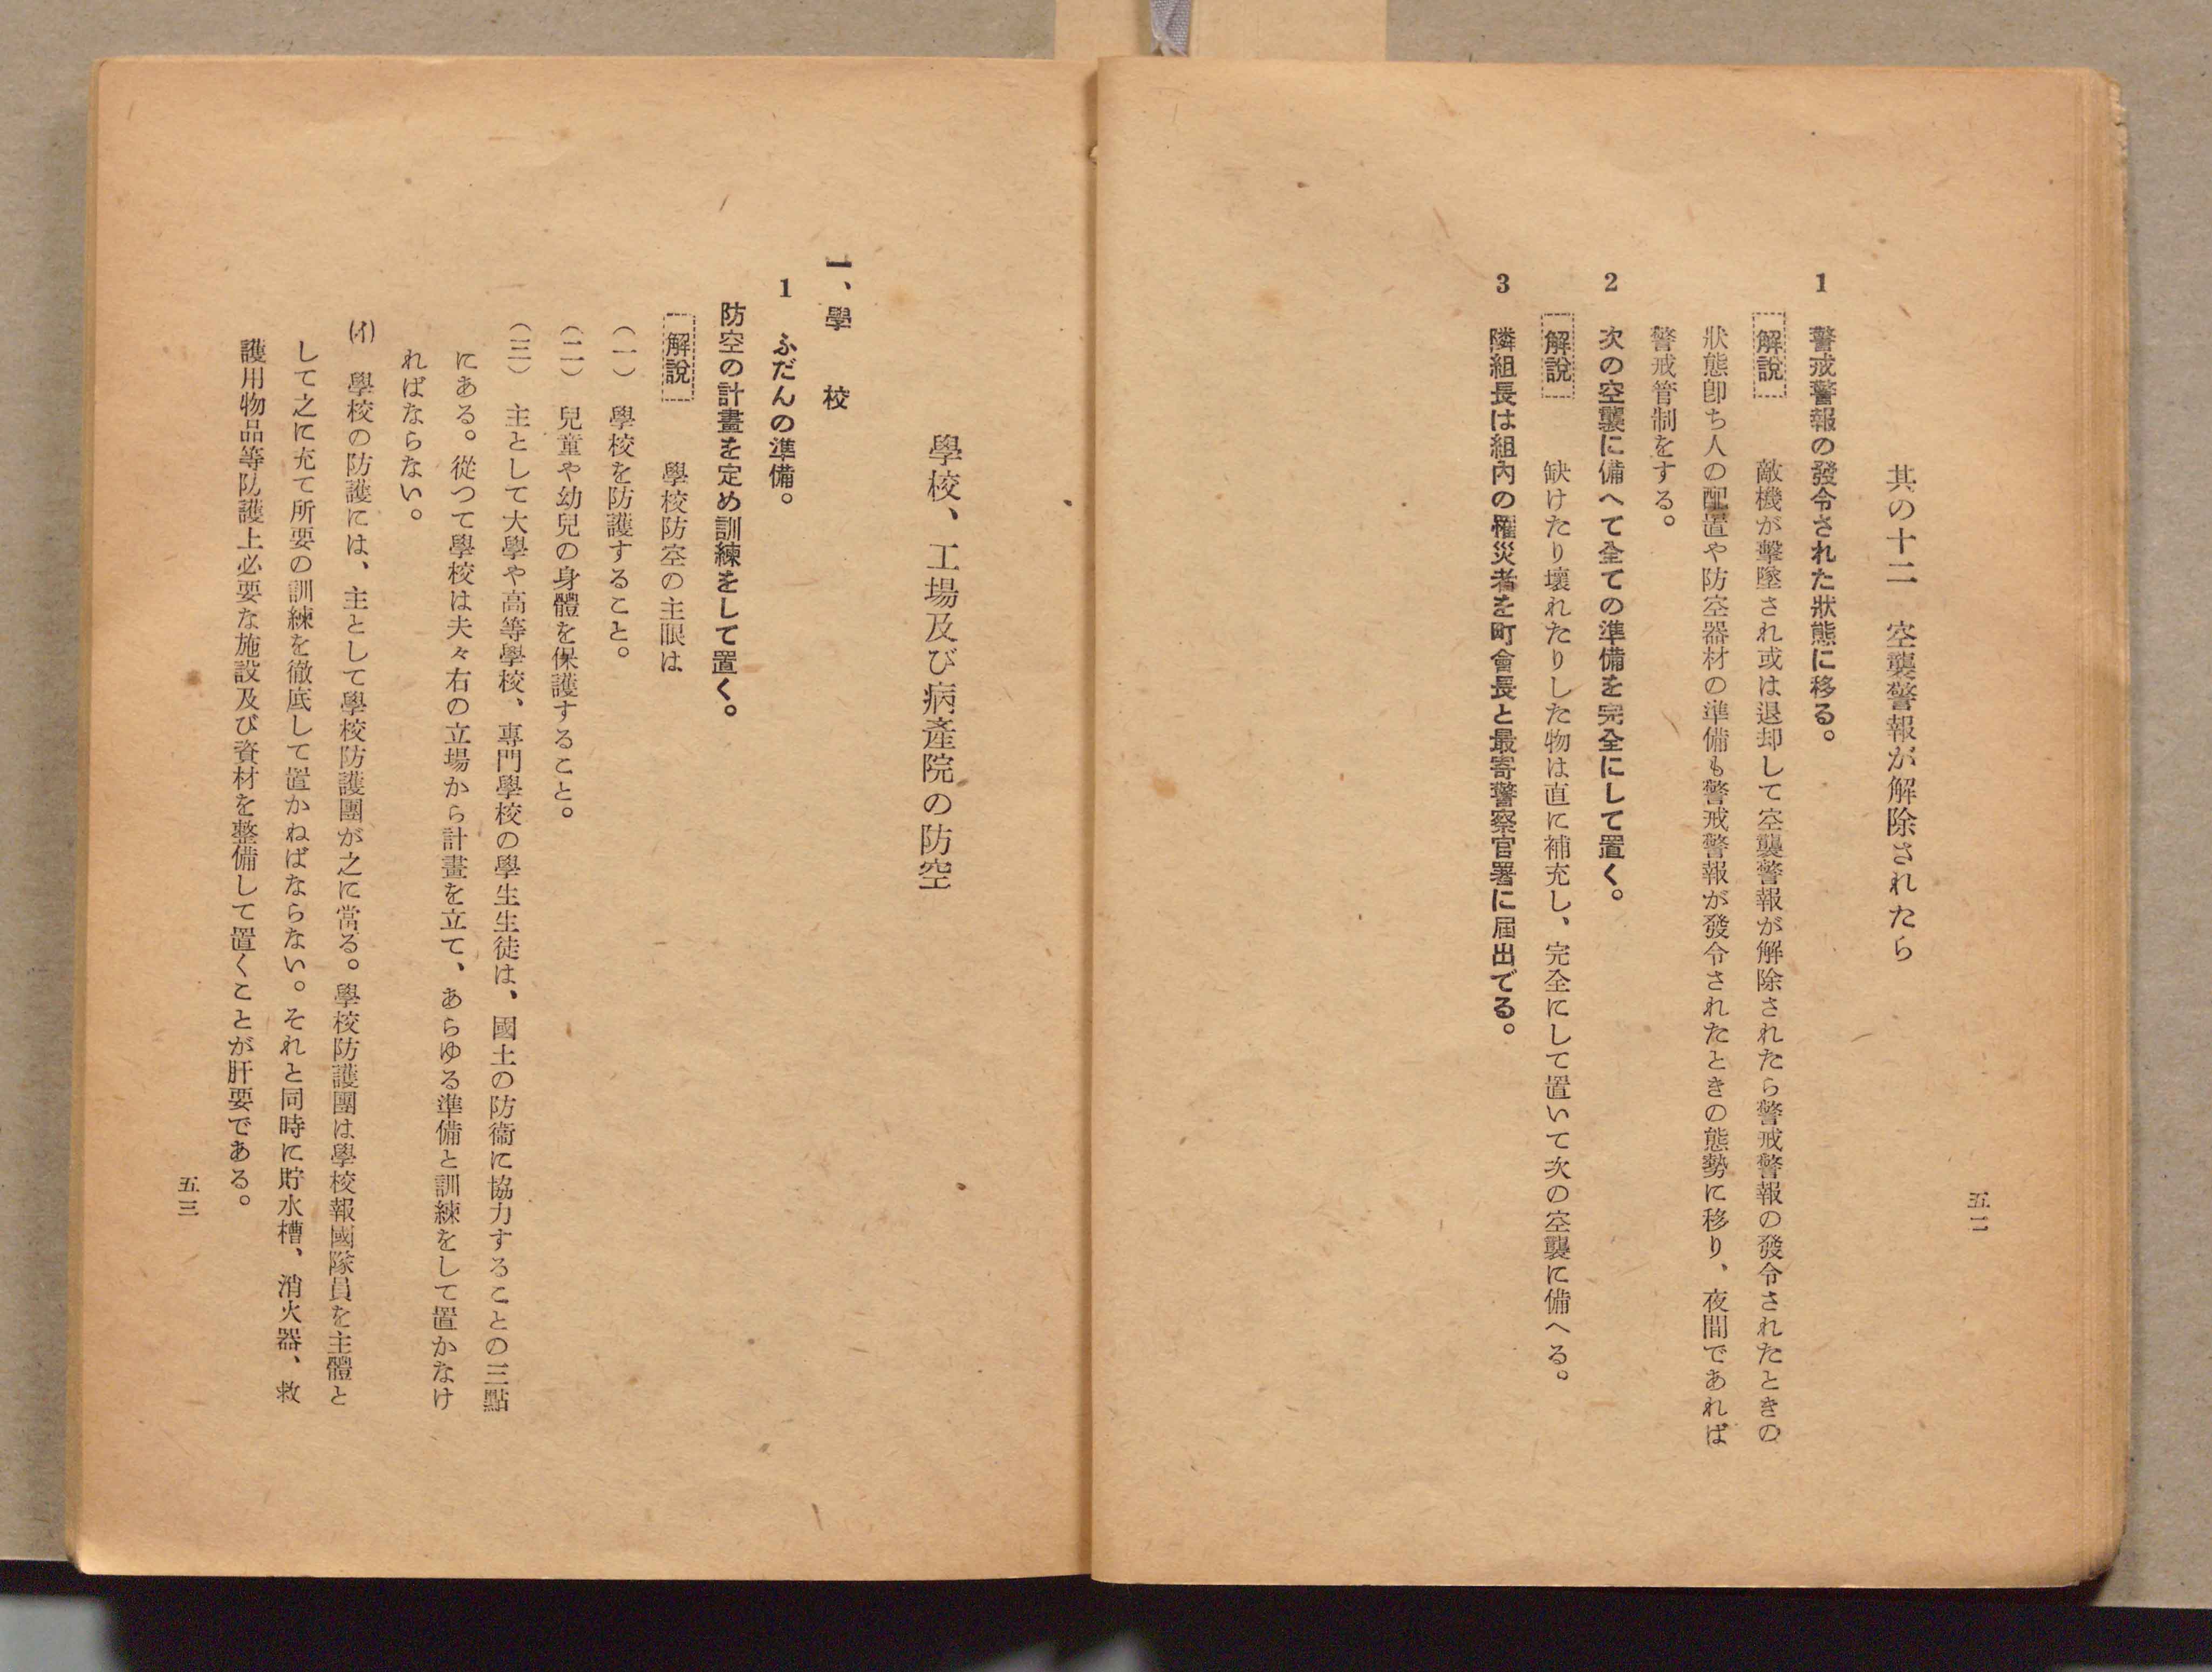 其の十二　空襲警報が解除されたら
1　警戒警報の發令された狀態に移る。
解說　敵機が擊墜され或は退却して空襲警報が解除されたら警戒警報の發令されたときの
狀態卽ち人の配置や防空器材の準備も警戒警報が發令されたときの態勢に移り、夜間であれば
警戒管制をする。
2　次の空襲に備へて全ての準備を完全にして置く。
解說　缺けたり壞れたりした物は直に補充し、完全にして置いて次の空襲に備へる。
3　隣組長は組內の罹災者を町會長と最寄警察官署に屆出でる。
五二
學校、工場及び病產院の防空
一、學　校
1　ふだんの準備。
防空の計畫を定め訓練をして置く。
解說　學校防空の主眼は
（一）　學校を防護すること。
（二）　兒童や幼兒の身體を保護すること。
（三）　主として大學や高等學校、專門學校の學生生徒は、國土の防衞に協力することの三點
にある。從つて學校は夫々右の立場から計畫を立て、あらゆる準備と訓練をして置かなけ
ればならない。
(イ)　學校の防護には、主として學校防護團が之に當る。學校防護團は學校報國隊員を主體と
して之に充て所要の訓練を徹底して置かねばならない。それと同時に貯水槽、消火器、救
護用物品等防護上必要な施設及び資材を整備して置くことが肝要である。
五三